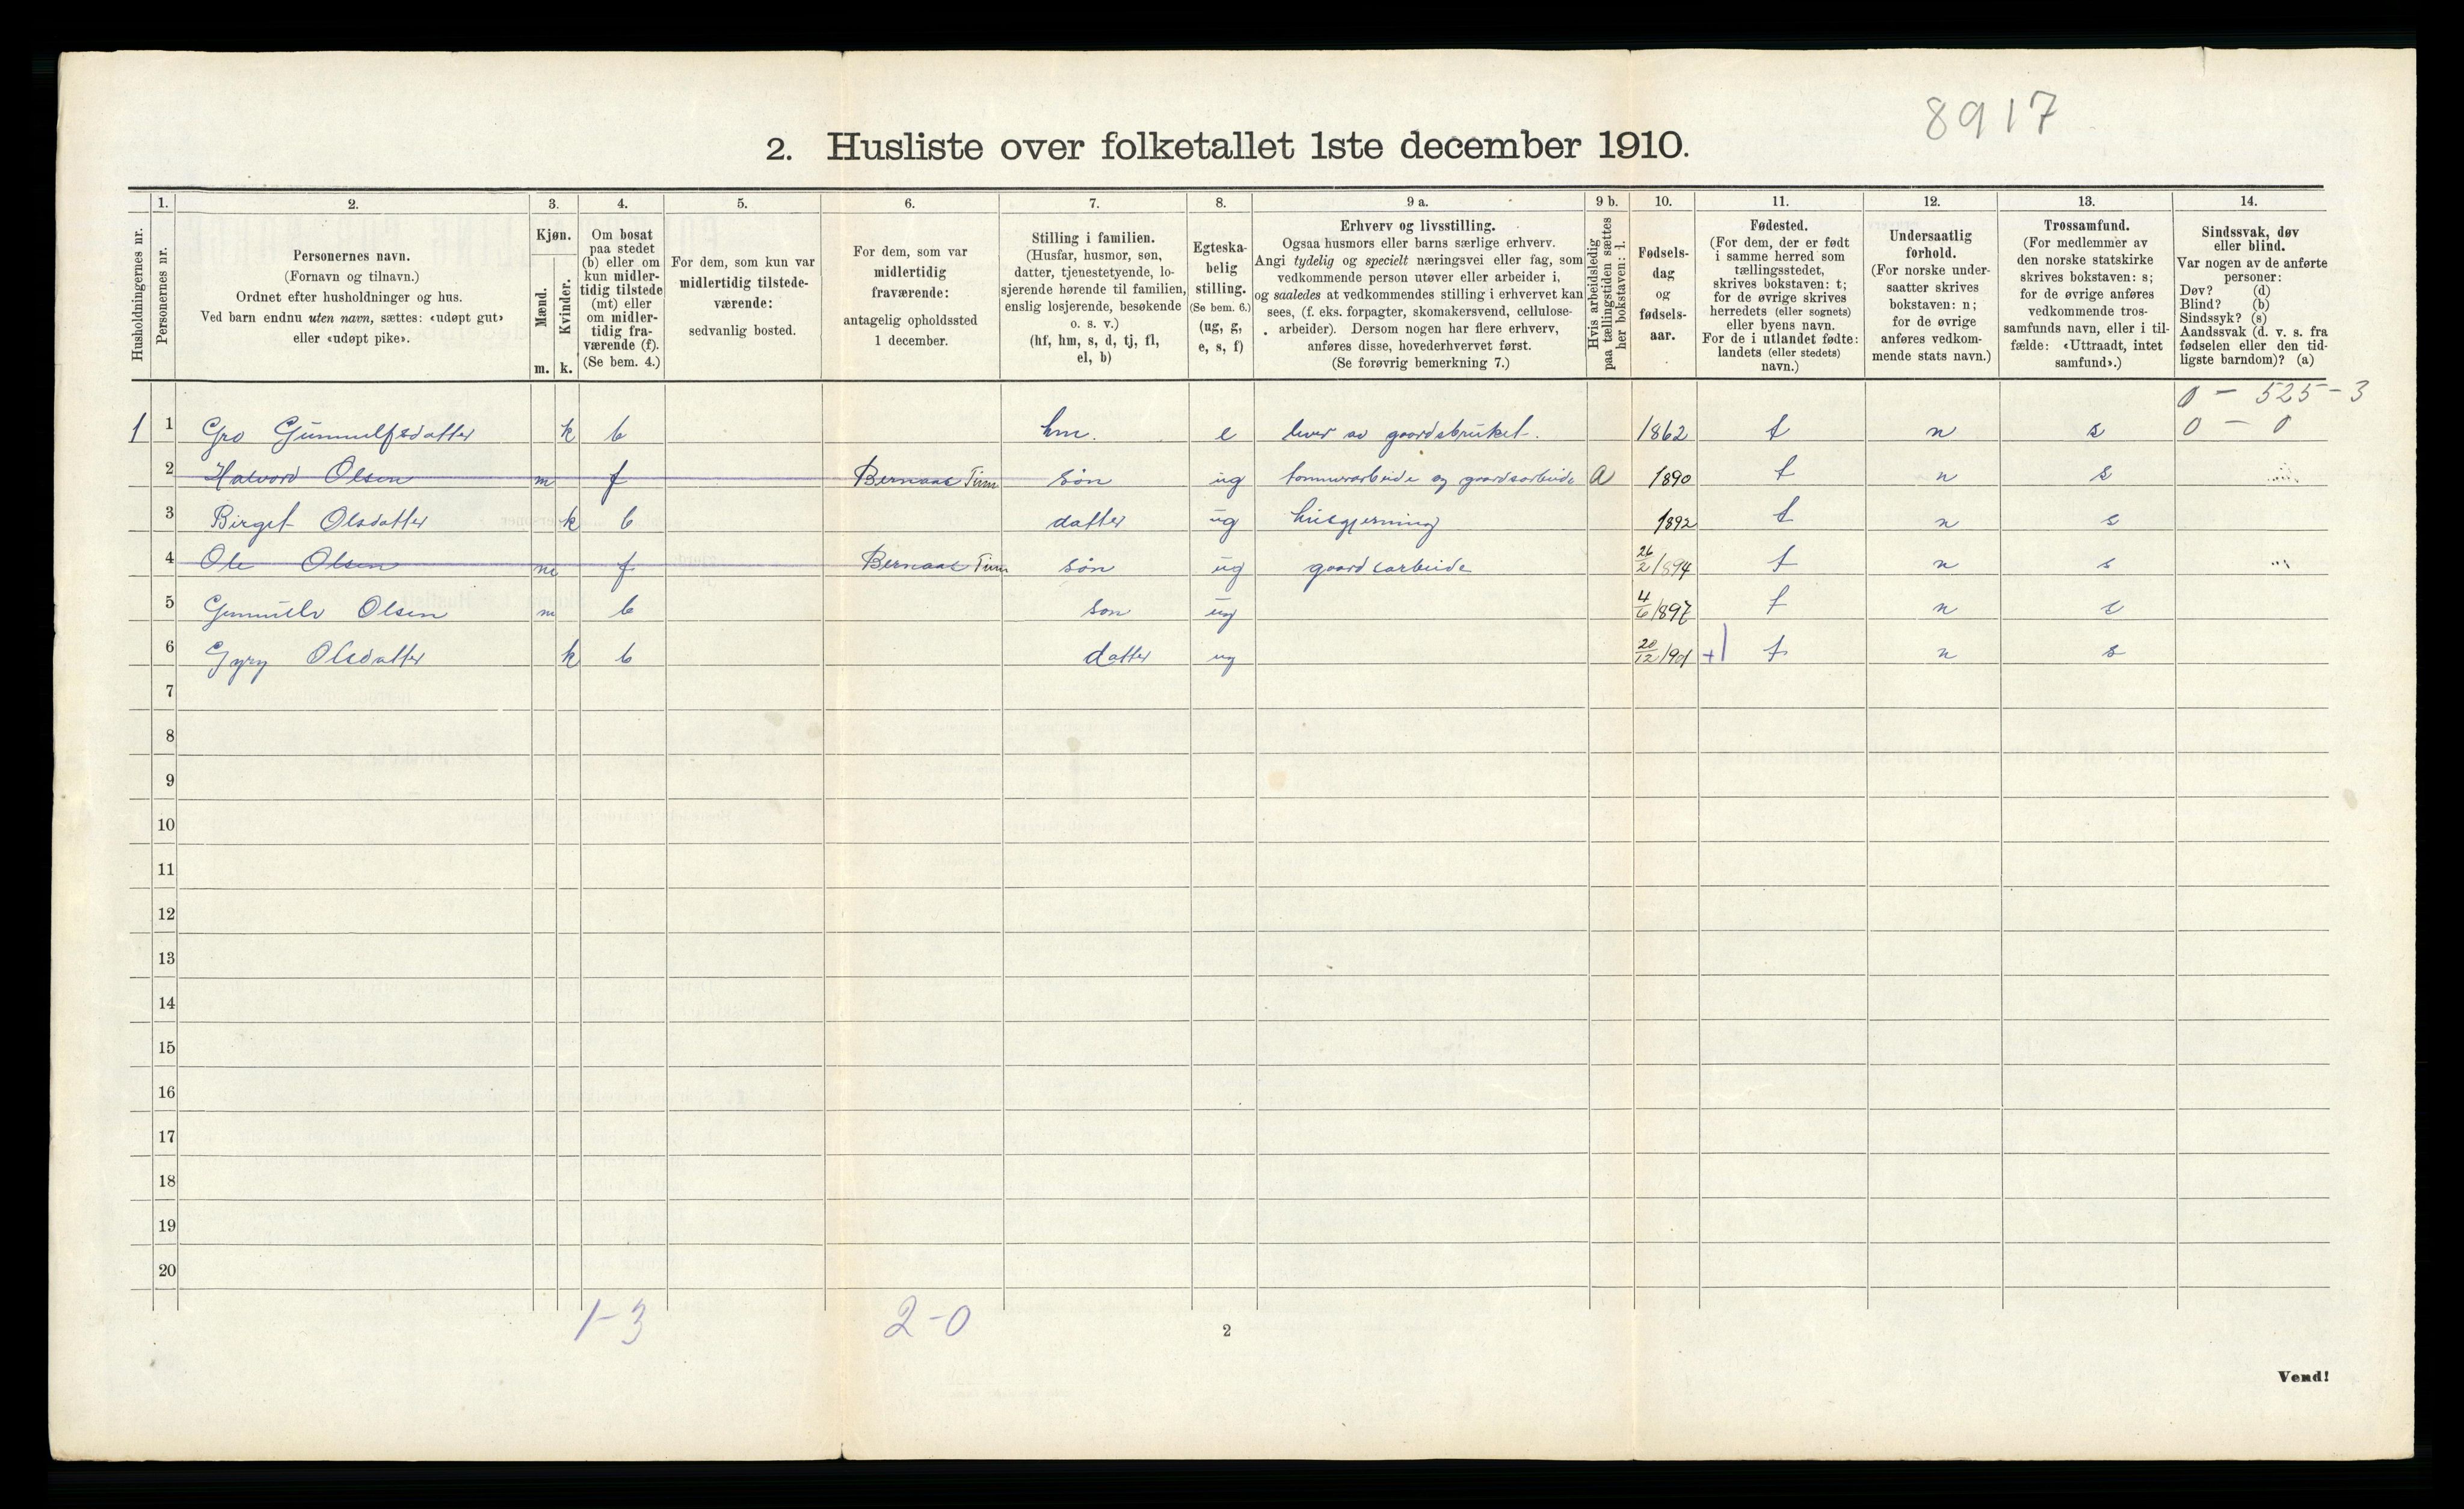 8917
2. Husliste over folketallet 1ste december 1910.
Husholdningernes nr.
1.
Personernes nr.
2.
Personernes navn.
(Fornavn og tilnavn.)
Ordnet efter husholdninger og hus.
Ved barn endnu uten navn, sættes: «udøpt gut»
eller «udøpt pike».
3.
Kjøn.
Mænd.
Kvinder.
m. k.
4.
Om bosat
paa stedet
(b) eller om
kun midler-
tidig tilstede
(mt) eller
om midler-
tidig fra-
værende (f).
(Se bem. 4.)
5.
For dem, som kun var
midlertidig tilstede-
værende:
sedvanlig bosted.
6.
For dem, som var
midlertidig
fraværende:
antagelig opholdssted
1 december.
7.
Stilling i familien.
(Husfar, husmor, søn,
datter, tjenestetyende, lo-
sjerende hørende til familien,
enslig losjerende, besøkende
o. s. v.)
(hf, hm, s, d, tj, fl,
el, b)
8.
Egteska-
belig
stilling.
(Se bem. 6.)
(ug, g,
e, s, f)
9 a.
Erhverv og livsstilling.
Ogsaa husmors eller barns særlige erhverv.
Angi tydelig og specielt næringsvei eller fag, som
vedkommende person utøver eller arbeider i,
og saaledes at vedkommendes stilling i erhvervet kan
sees, (f. eks. forpagter, skomakersvend, cellulose-
arbeider). Dersom nogen har flere erhverv,
anføres disse, hovederhvervet først.
(Se forøvrig bemerkning 7.)
9 b.
Hvis arbeidsledig
paa tællingstiden sættes
her bokstaven: l.
10.
Fødsels-
dag
og
fødsels-
aar.
11.
Fødested.
(For dem, der er født
i samme herred som
tællingsstedet,
skrives bokstaven: t;
for de øvrige skrives
herredets (eller sognets)
eller byens navn.
For de i utlandet fødte:
landets (eller stedets)
navn.)
12.
Undersaatlig
forhold.
(For norske under-
saatter skrives
bokstaven: n;
for de øvrige
anføres vedkom-
mende stats navn.)
13.
Trossamfund.
(For medlemmer av
den norske statskirke
skrives bokstaven: s;
for de øvrige anføres
vedkommende tros-
samfunds navn, eller i til-
fælde: «Uttraadt, intet
samfund».)
14.
Sindssvak, døv
eller blind.
Var nogen av de anførte
personer:
Døv? (d)
Blind? (b)
Sindssyk? (s)
Aandssvak (d. v. s. fra
fødselen eller den tid-
ligste barndom)? (a)
0 - 525-3
1 1 Gro Gunnulfsdatter k b hm. e lever av gaardsbruket. 1862 t n s 0 - 0
2 Halvord Olsen m f Bernaas Tinn søn ug tømmerarbeide og gaardsarbeide a 1890 t n s
3 Birget Olsdatter k b datter ug husgjerning 1892 t n s
4 Ole Olsen m f Bernaas Tinn søn ug gaardsarbeide 26/2 1894 t n s
5 Gunnulv Olsen m b søn ug 4/6 1897 t n s
6 Gyry Olsdatter k b datter ug 20/12 1901 +1 t n s
7
8
9
10
11
12
13
14
15
16
17
18
19
20
1-3 2-0
2
Vend!